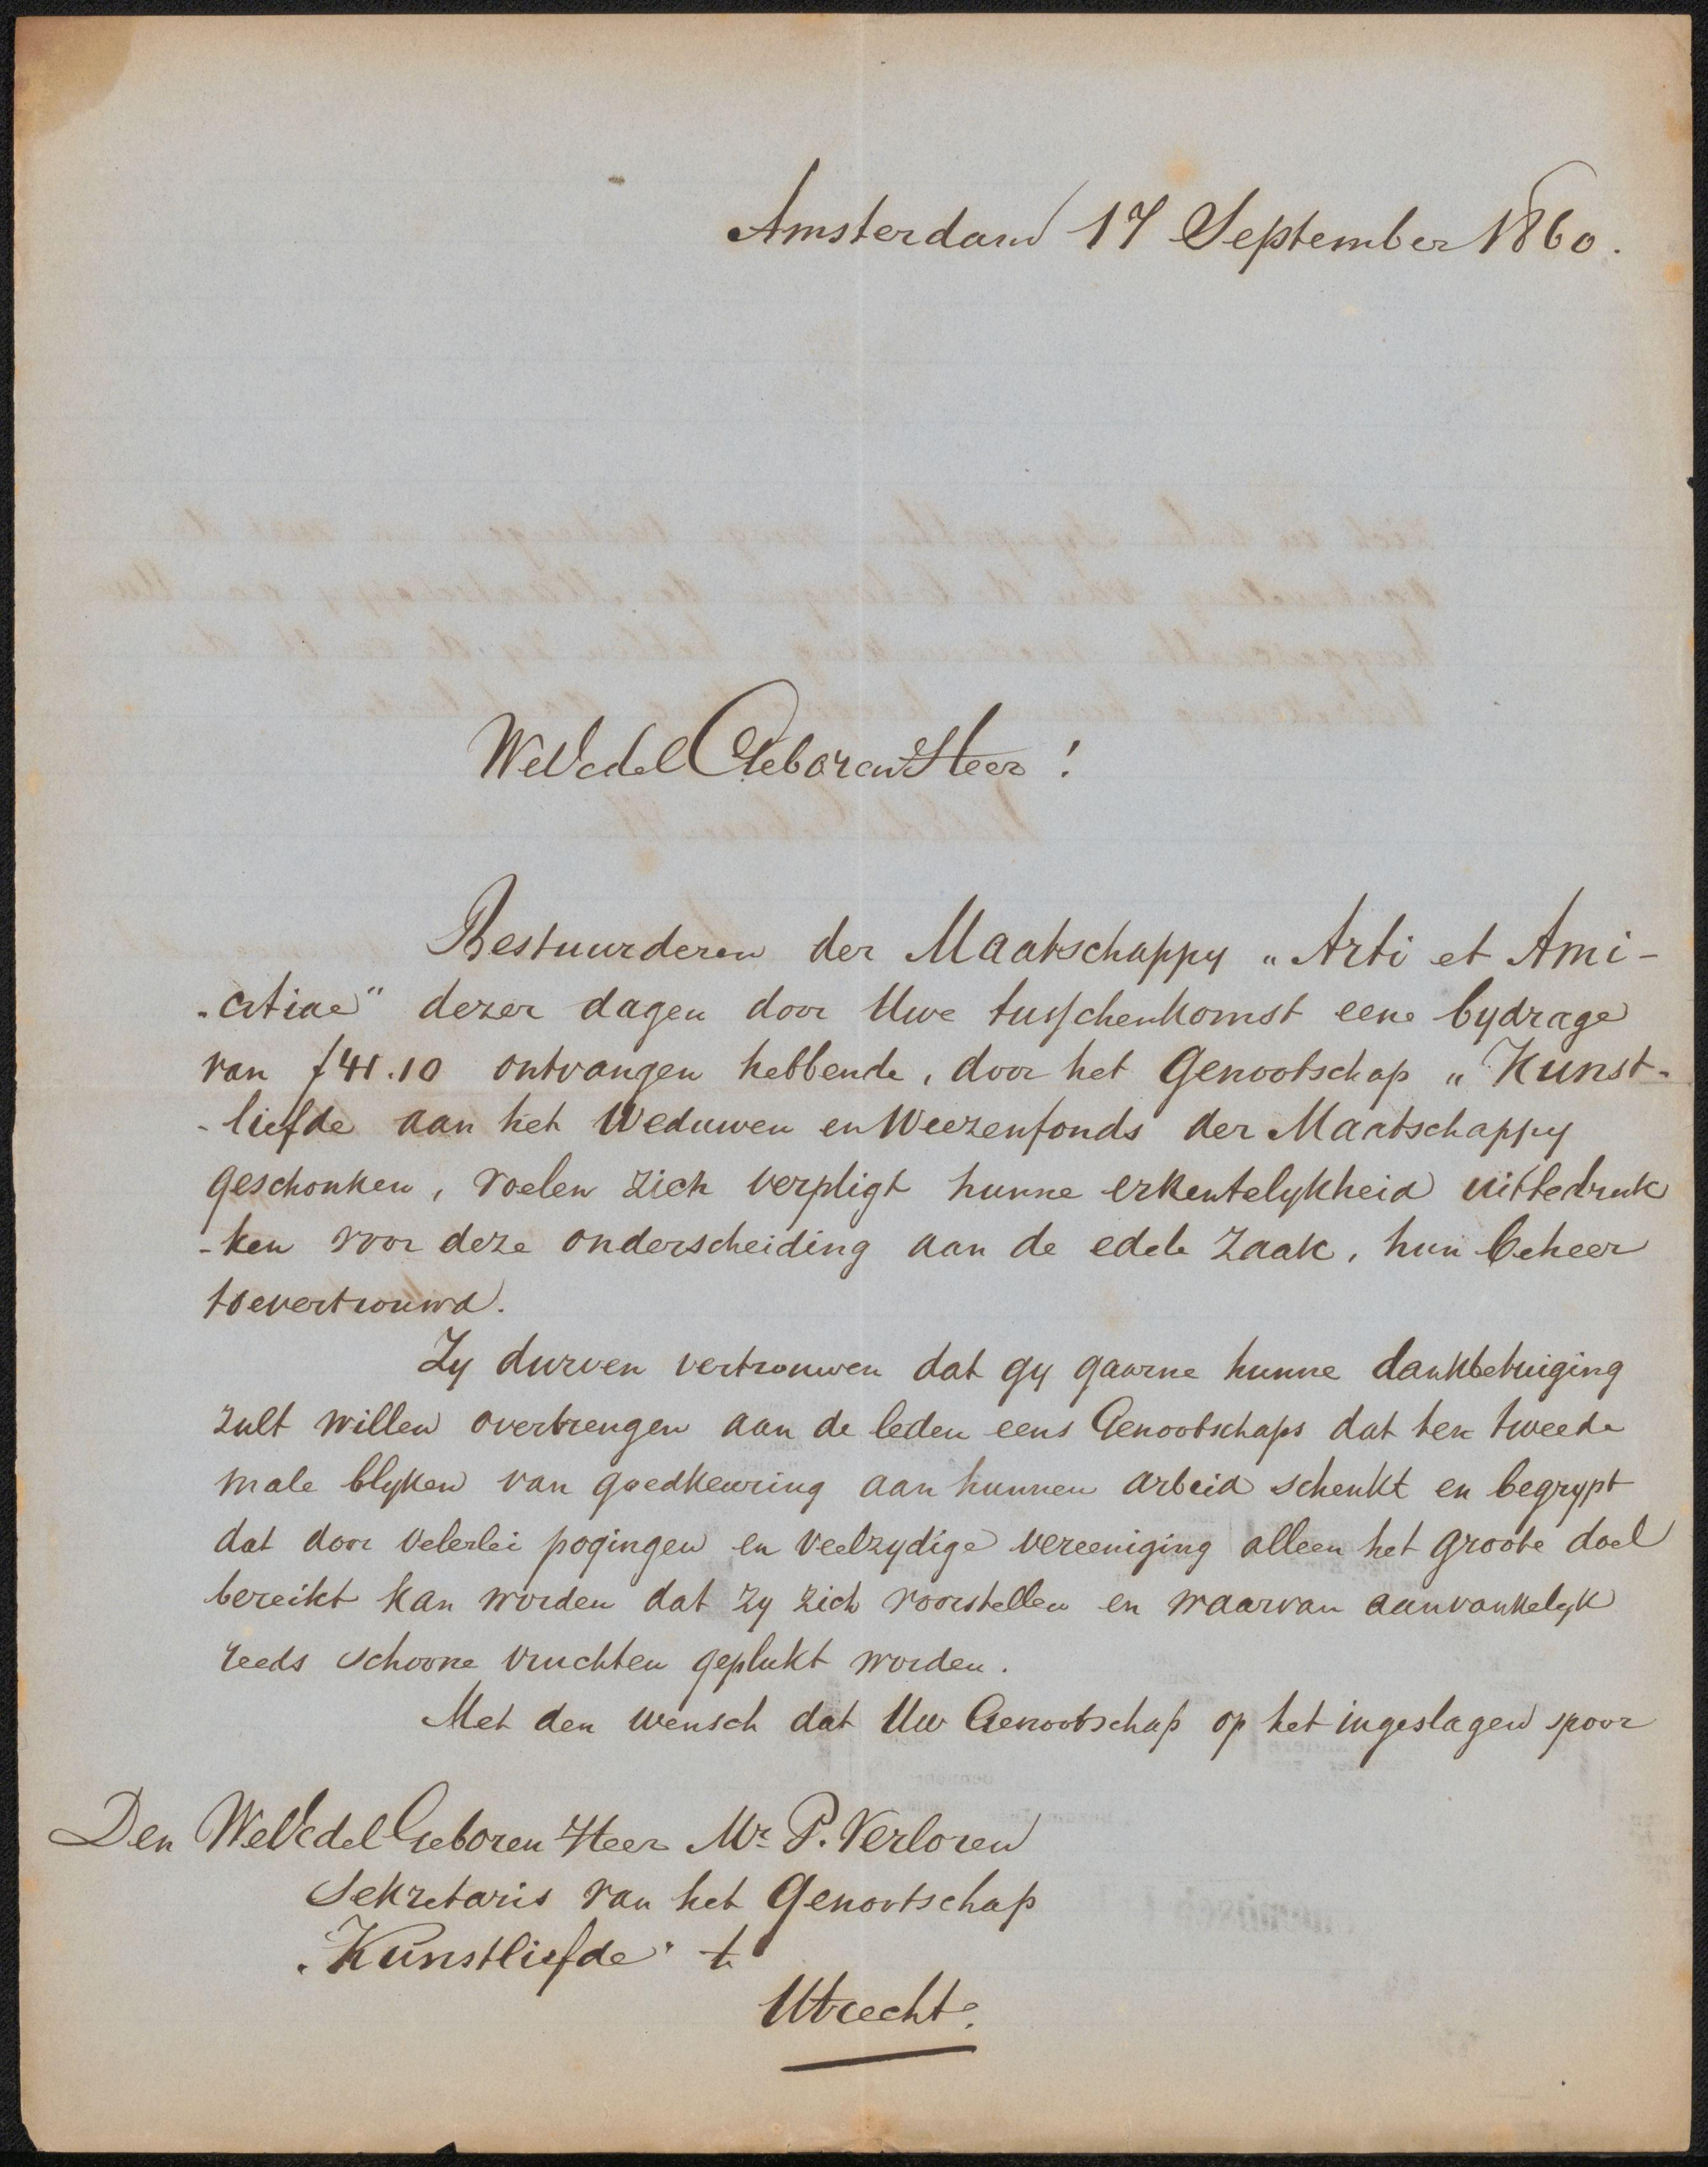 Amsterdam 17 September 1860.
WelEdel Geboren Heer!
Bestuurderen der Maatschappy „Arti et Ami-
„citiae" dezer dagen door Uwe tusschenkomst eene bydrage
van f 41.10 ontvangen hebbende, door het Genootschap „Kunst-
-liefde aan het Weduwen en Weezenfonds der Maatschappy
geschonken, voelen zich verpligt hunne erkentelykheid uittedruk
-ken voor deze onderscheiding aan de edele zaak, hun beheer
toevertrouwd.
Zy durven vertrouwen dat gy gaarne hunne dankbetuiging
zult willen overbrengen aan de leden eens Genootschaps dat ten tweede
male blyken van goedkeuring aan hunnen arbeid schenkt en begrypt
dat door velerlei pogingen en veelzydige vereeniging alleen het groote doel
bereikt kan worden dat zy zich voorstellen en waarvan aanvankelyk
reeds schoone vruchten geplukt worden.
Met den wensch dat Uw Genootschap op het ingeslagen spoor
Den WelEdel Geboren Heer Mr P. Verloren
Sekretaris van het Genootschap
„Kunstliefde" te
Utrecht.